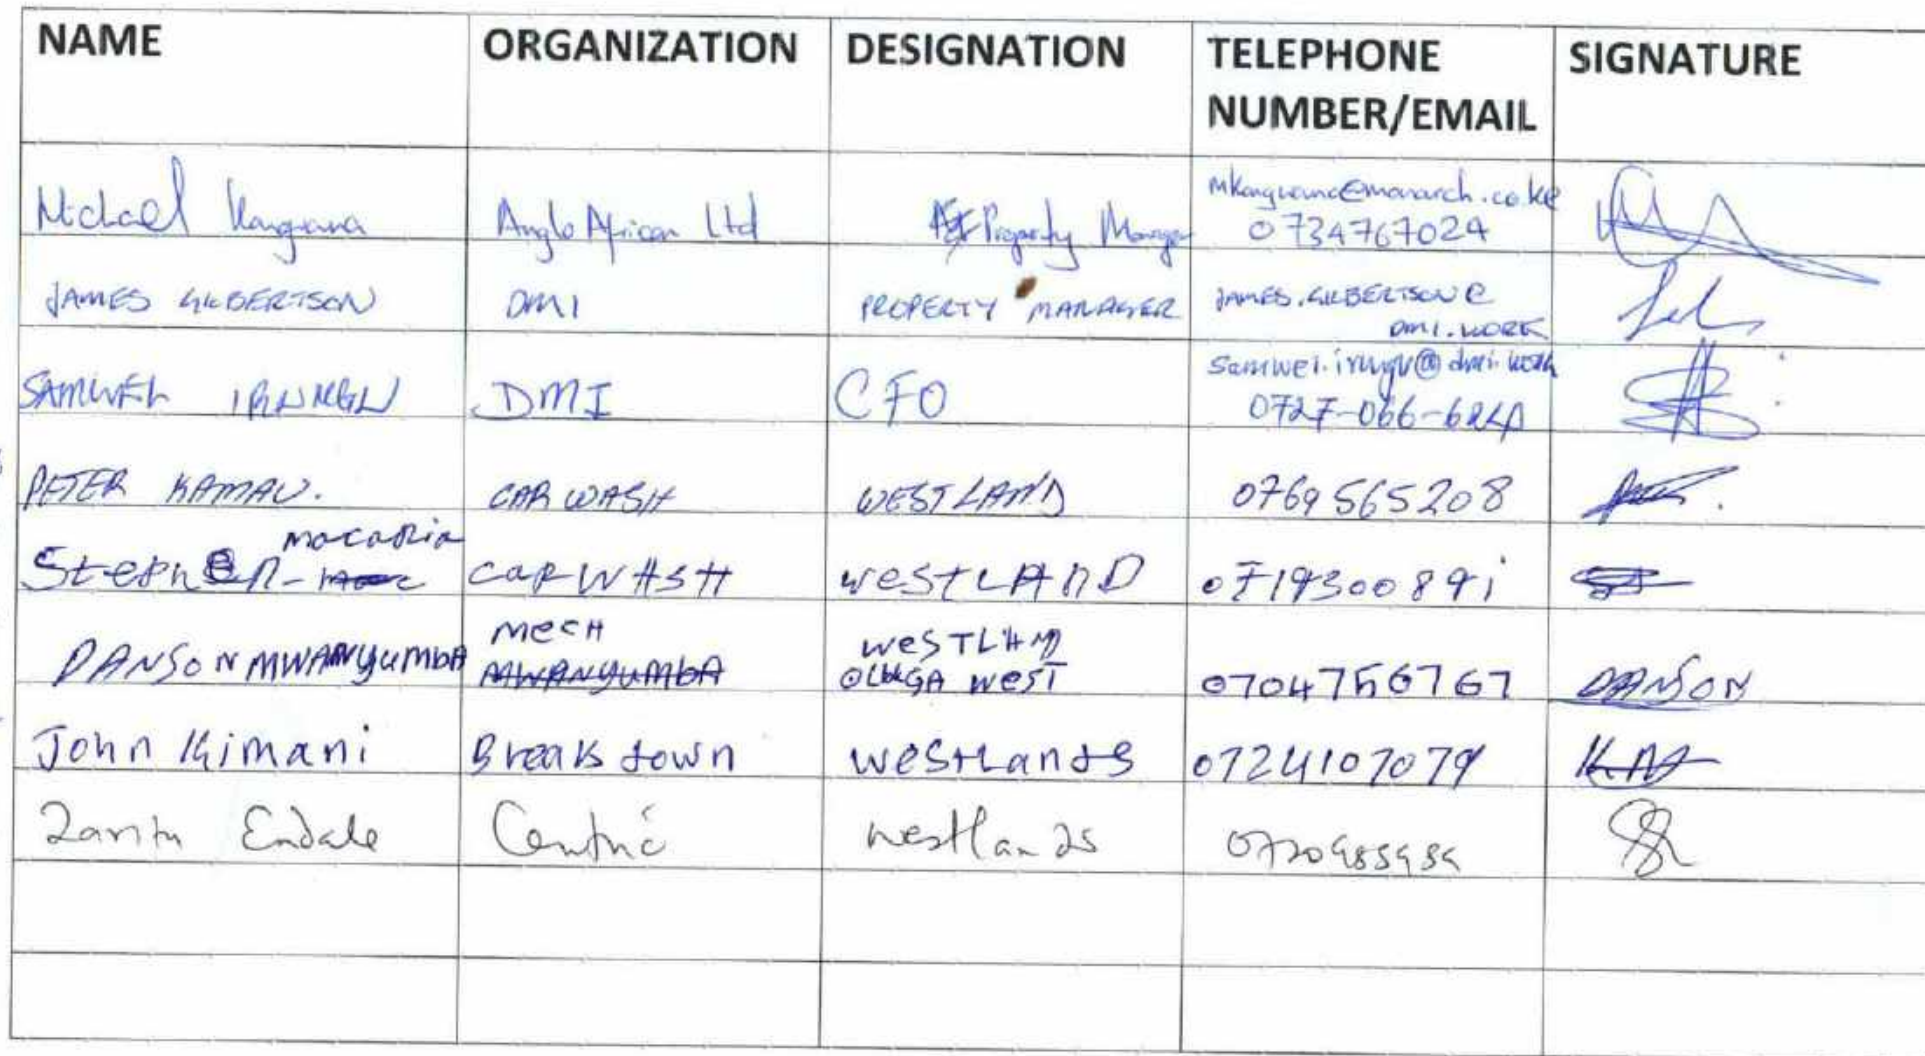 NAME ORGANIZATION DESIGNATION TELEPHONE NUMBER/EMAIL SIGNATURE
Michael Kangwana Anglo African Ltd Property Manager mkangwana@monarch.co.ke
0734767024
JAMES GILBERTSON DMI PROPERTY MANAGER JAMES.GILBERTSON@
DMI.WORK
SAMWEL DMI CFO samwel.irungu@dmi.work
PETER KAMAU. CAR WASH WESTLAND 0769565208
macaria
Stephen CAR WASH WESTLAND
DANSON MWANYUMBA MECH WESTLAND
MWANYUMBA WEST 0704756767 DANSON
John Kimani Breakdown westlands 0724107079
Endale Centric westlands